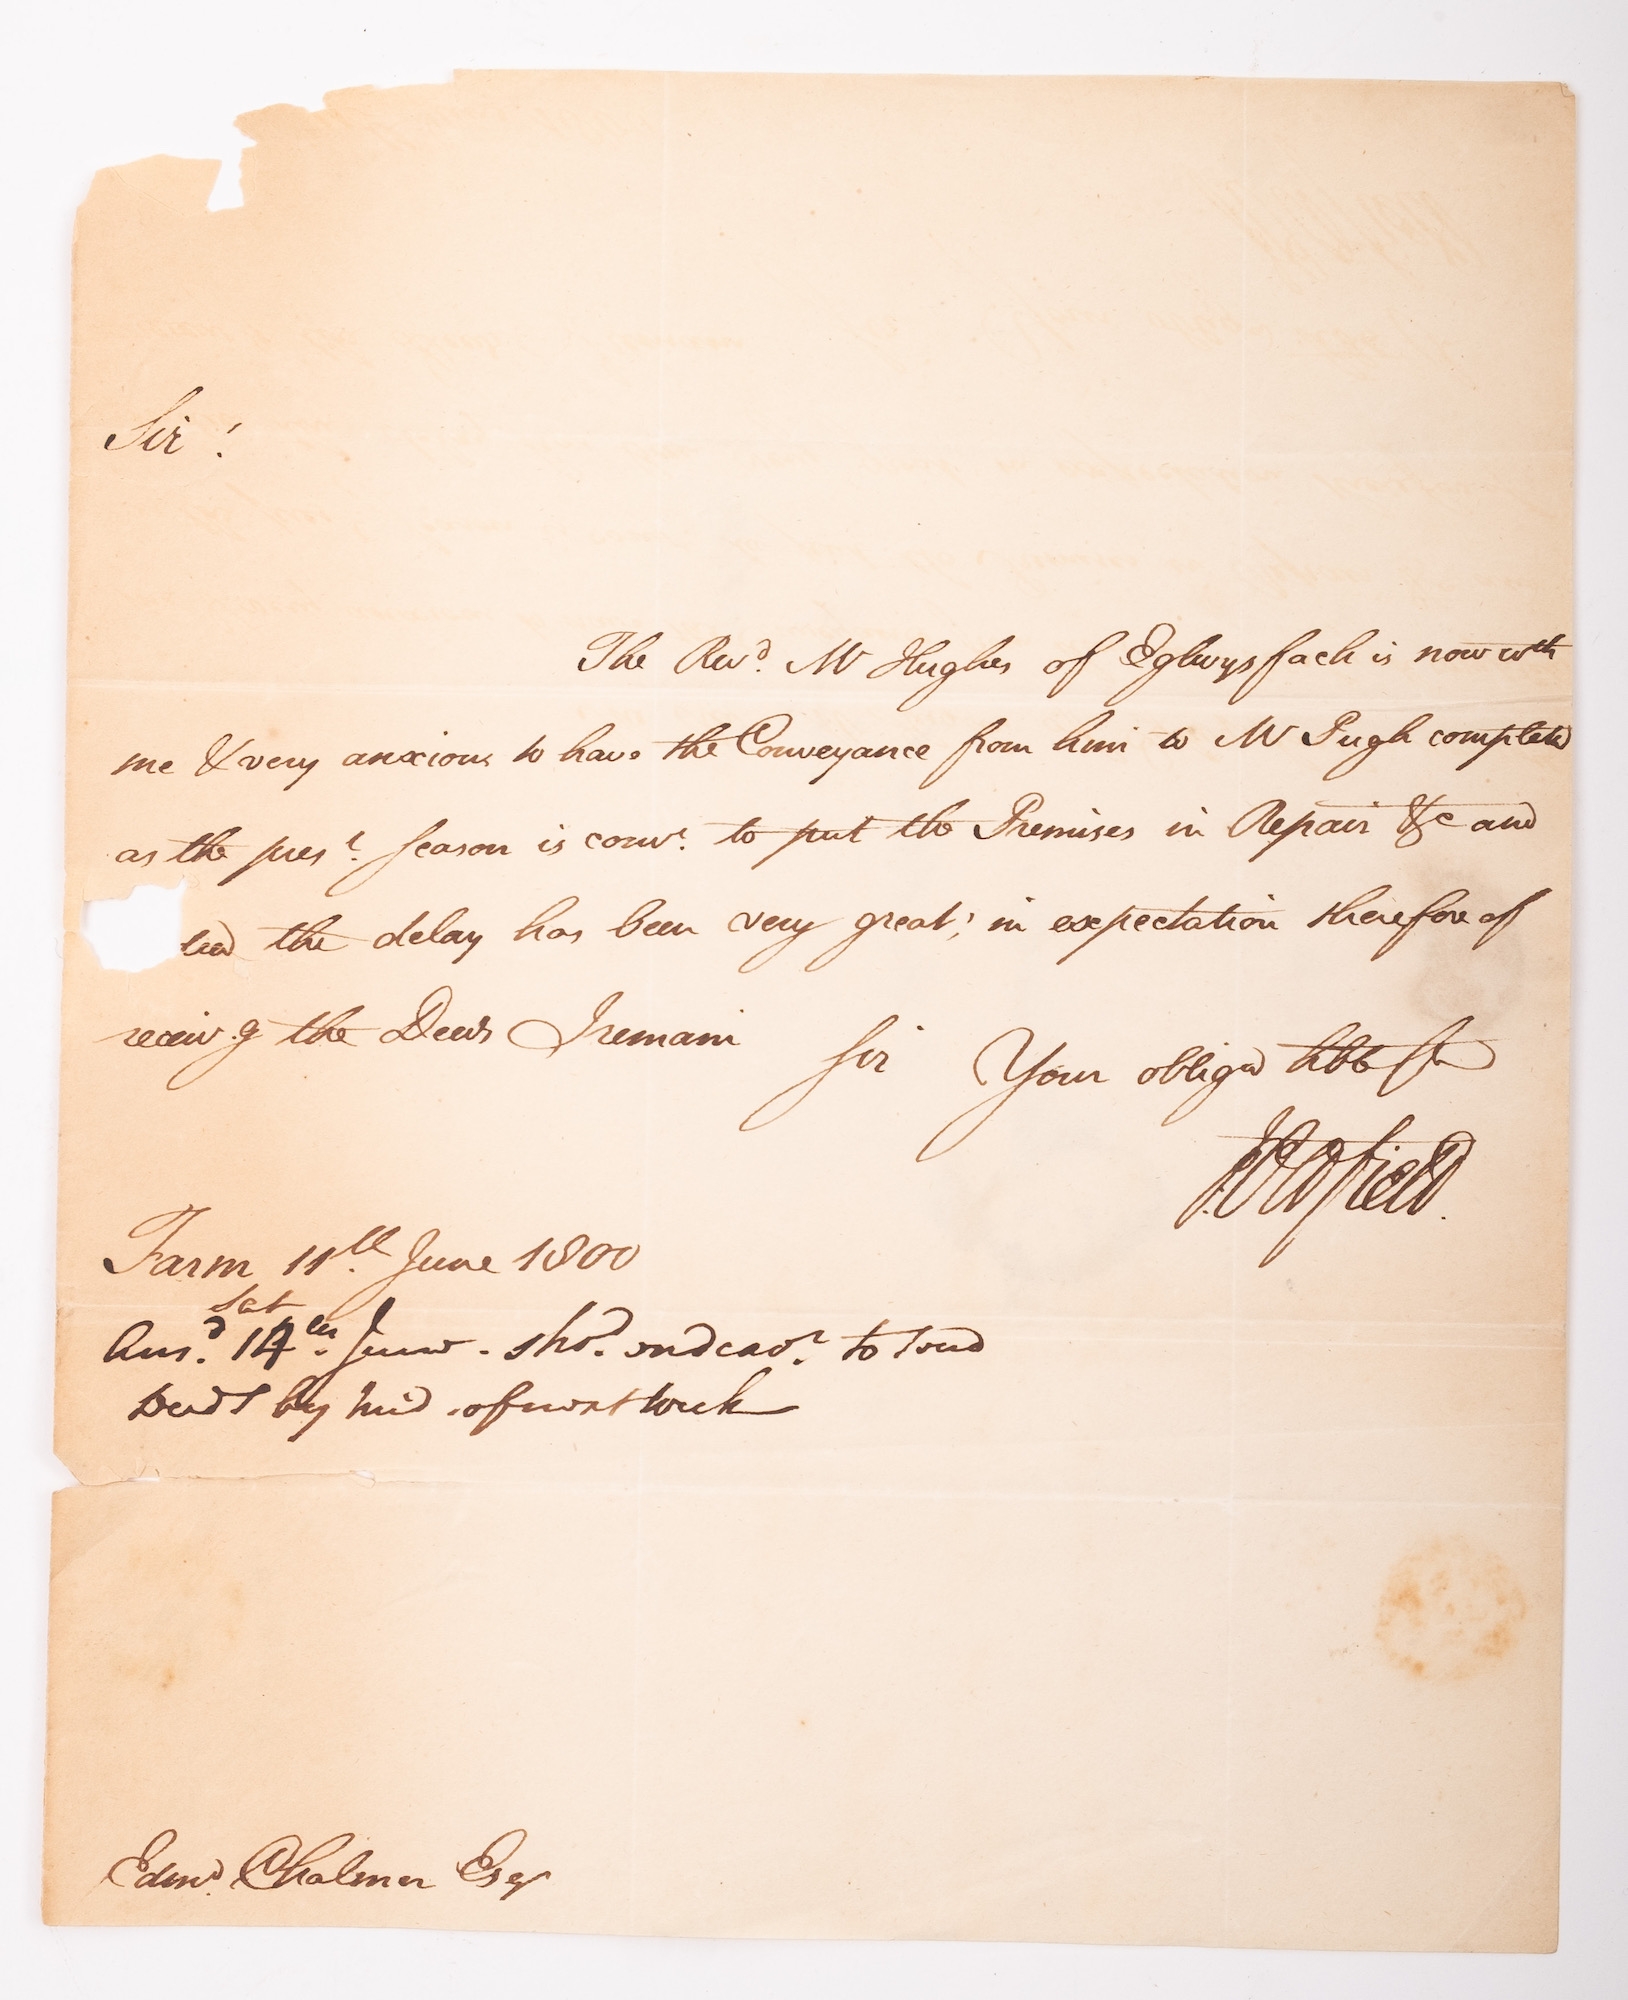 Sir!
The Revd. Mr Hughes of Eglwysfach is now wth
me & very anxious to have the Conveyance from him to Mr Pugh completed
as the prest. Season is convt. to put the Premises in Repair &c and
the delay has been very great; in expectation therefore of
receivg. the Deeds I remain Sir Your obliged hble St
J. Oldfield.
Farm 11th. June 1800
Sat
Ansd. 14th. June. shd. endeavr. to send
Deeds by mid. of next week
Edmd. Chalmer Esqr